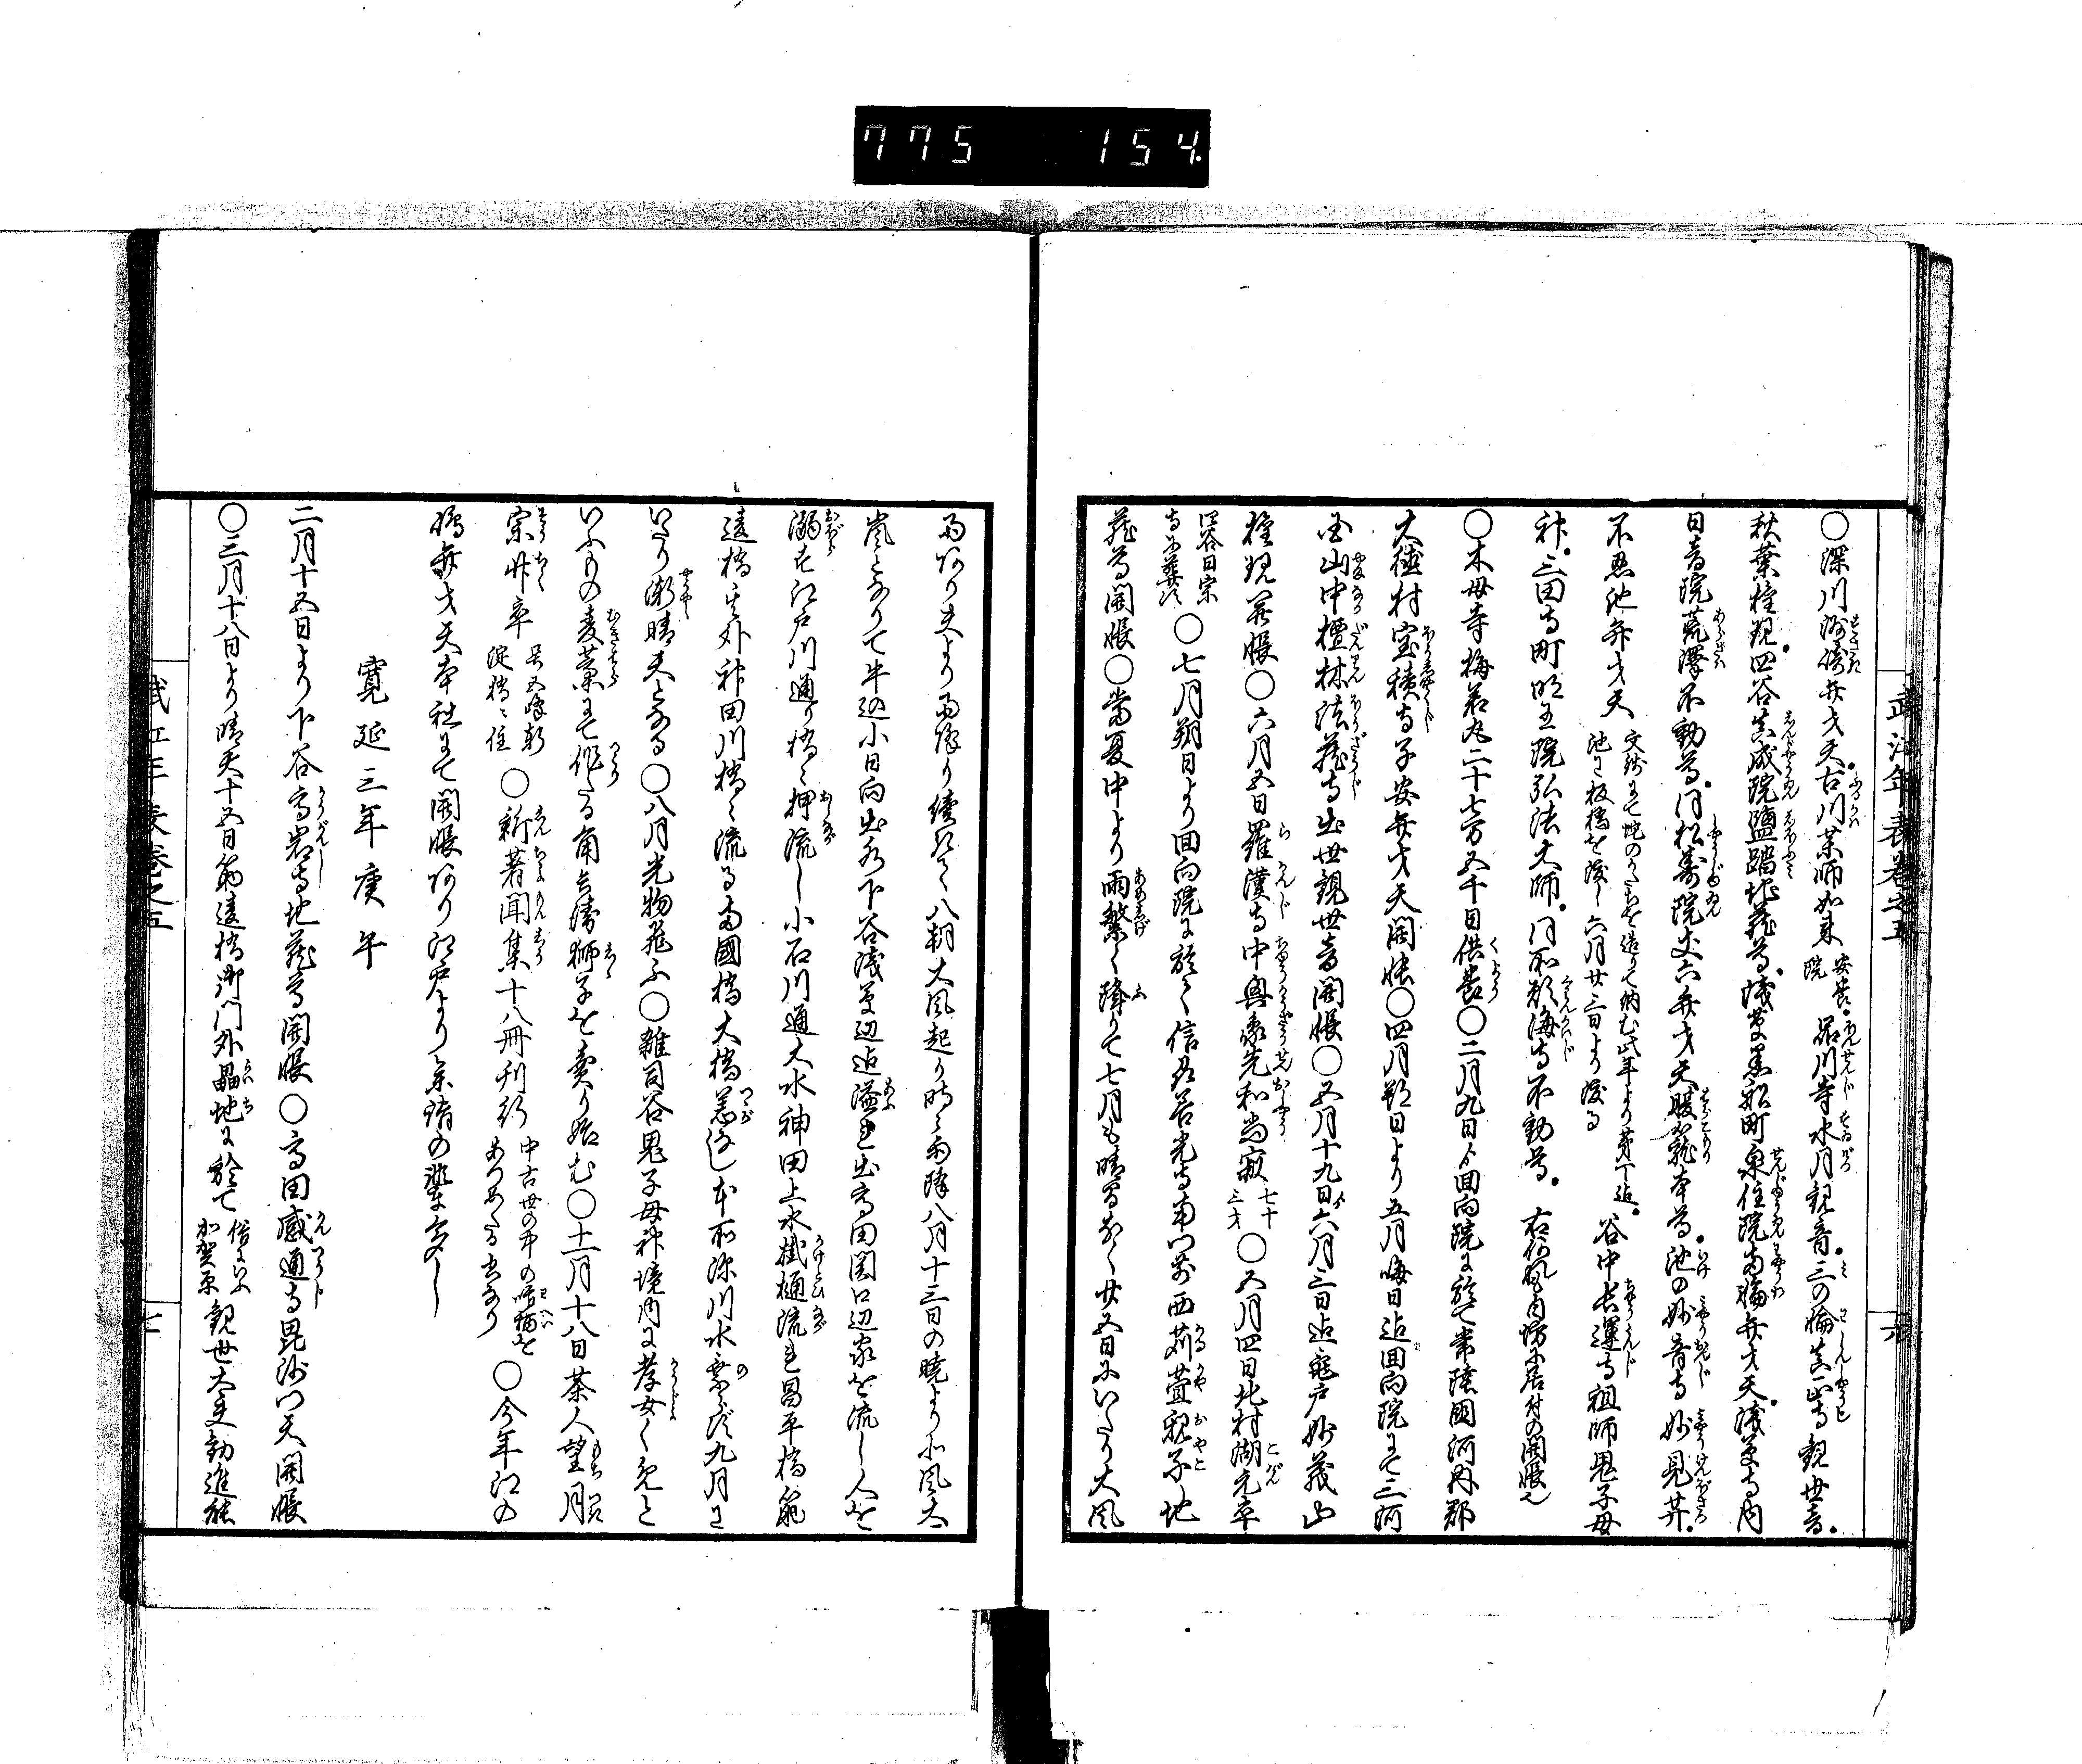 775 154
武江年表巻之五
六
〇深川洲崎弁才天古川薬師如来安養院品川寺水月観音三の輪真正寺観世音
秋葉権現四谷真成院塩踏地蔵尊浅草黒船町泉住院両輪弁才天浅草寺内
日音院荒澤不動尊同松寿院丈六弁才天
不忍池弁才天文政にて蛇のかたちを造りて納む此年より 池に板橋を渡し六月廿三日より渡る谷中長運寺祖師鬼子母
神三田寺町明王院弘法大師同所願海寺不動尊
〇木母寺梅若丸二十七万五千日供養〇二月九日より回向院に於て常陸國河内郡
大徳村宝積寺子安弁才天開帳〇四月朔日より五月晦日迄回向院にて三河
国山中檀林法蔵寺出世観世音開帳〇五月十九日より六月三日迄亀戸妙義山
権現開帳〇六月五日羅漢寺中興象先和尚寂七十三才〇五月四日北村湖元卒
四谷日宗寺に葬す〇七月朔日より回向院に於て信州善光寺南門前西苅萱親子地
蔵尊開帳〇當夏中より雨繁く降りて七月も晴間なく廿五日にいたり大風
雨あり夫より雨降り続きて八朔大風起り時々雨降八月十三日の暁より北風大
嵐となりて牛込小日向出水下谷浅草辺迄溢れ出高田関口辺家を流し人を
溺す江戸川通り橋々押流し小石川通大水神田上水掛樋流れ昌平橋筋
違橋其外神田川橋々流る両國橋大橋恙なし本所深川水乗らず九月に
いたり漸晴天となる〇八月光物飛ふ〇雑司谷鬼子母神境内に孝女くめと
いふもの麦藁にて作たる角兵衛獅子を売り始む〇十一月十八日茶人望月
宗竺卒号五峰軒淀橋に住〇新著聞集十八冊刊行中古世の中の咄柄をあつめたる書なり〇今年江の
嶋弁才天本社にて開帳あり江戸より参詣の輩多し
寛延三年庚午
二月十五日より下谷高岩寺地蔵尊開帳〇高田感通寺毘沙門天開帳
〇三月十八日より晴天十五日筋違橋御門外畾地に於て俗にいふ加賀原観世大夫勧進能
武江年表巻之五
七